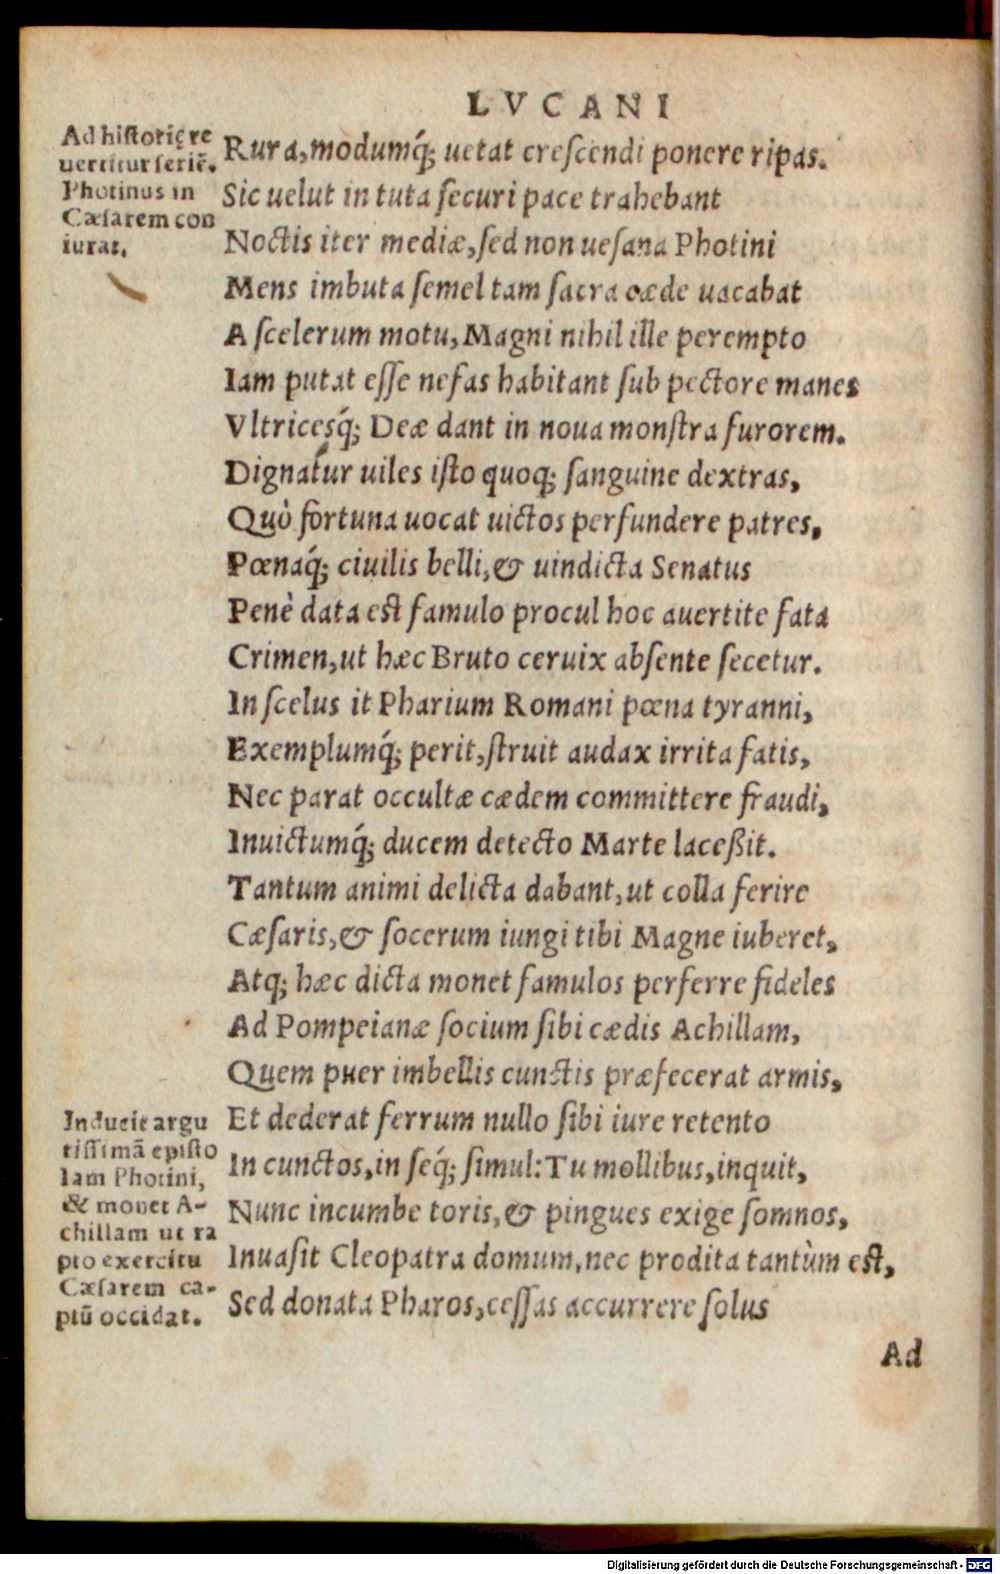 LVCANI
Ad historię re
uertitur seriē.
Photinus in
Cæsarem con
iurat.
Rura, modumq́; uetat crescendi ponere ripas.
Sic uelut in tuta securi pace trahebant
Noctis iter mediæ, sed non uesana Photini
Mens imbuta semel tam sacra cæde uacabat
A scelerum motu, Magni nihil ille perempto
Iam putat esse nefas habitant sub pectore manes
Vltricesq́; Deæ dant in noua monstra furorem.
Dignatur uiles isto quoq; sanguine dextras,
Quò fortuna uocat uictos perfundere patres,
Pœnaq́; ciuilis belli, & uindicta Senatus
Penè data est famulo procul hoc auertite fata
Crimen, ut hæc Bruto ceruix absente secetur.
In scelus it Pharium Romani pœna tyranni,
Exemplumq́; perit, struit audax irrita fatis,
Nec parat occultæ cædem committere fraudi,
Inuictumq́; ducem detecto Marte laceßit.
Tantum animi delicta dabant, ut colla ferire
Cæsaris, & socerum iungi tibi Magne iuberet,
Atq; hæc dicta monet famulos perferre fideles
Ad Pompeianæ socium sibi cædis Achillam,
Quem puer imbellis cunctis præfecerat armis,
Et dederat ferrum nullo sibi iure retento
In cunctos, in seq́; simul: Tu mollibus, inquit,
Nunc incumbe toris, & pingues exige somnos,
Inuasit Cleopatra domum, nec prodita tantùm est,
Sed donata Pharos, cessas accurrere solus
Inducit argu
tissimā episto
lam Photini,
& monet A-
chillam ut ra
pto exercitu
Cæsarem ca-
ptū occidat.
Ad
Digitalisierung gefördert durch die Deutsche Forschungsgemeinschaft - DFG